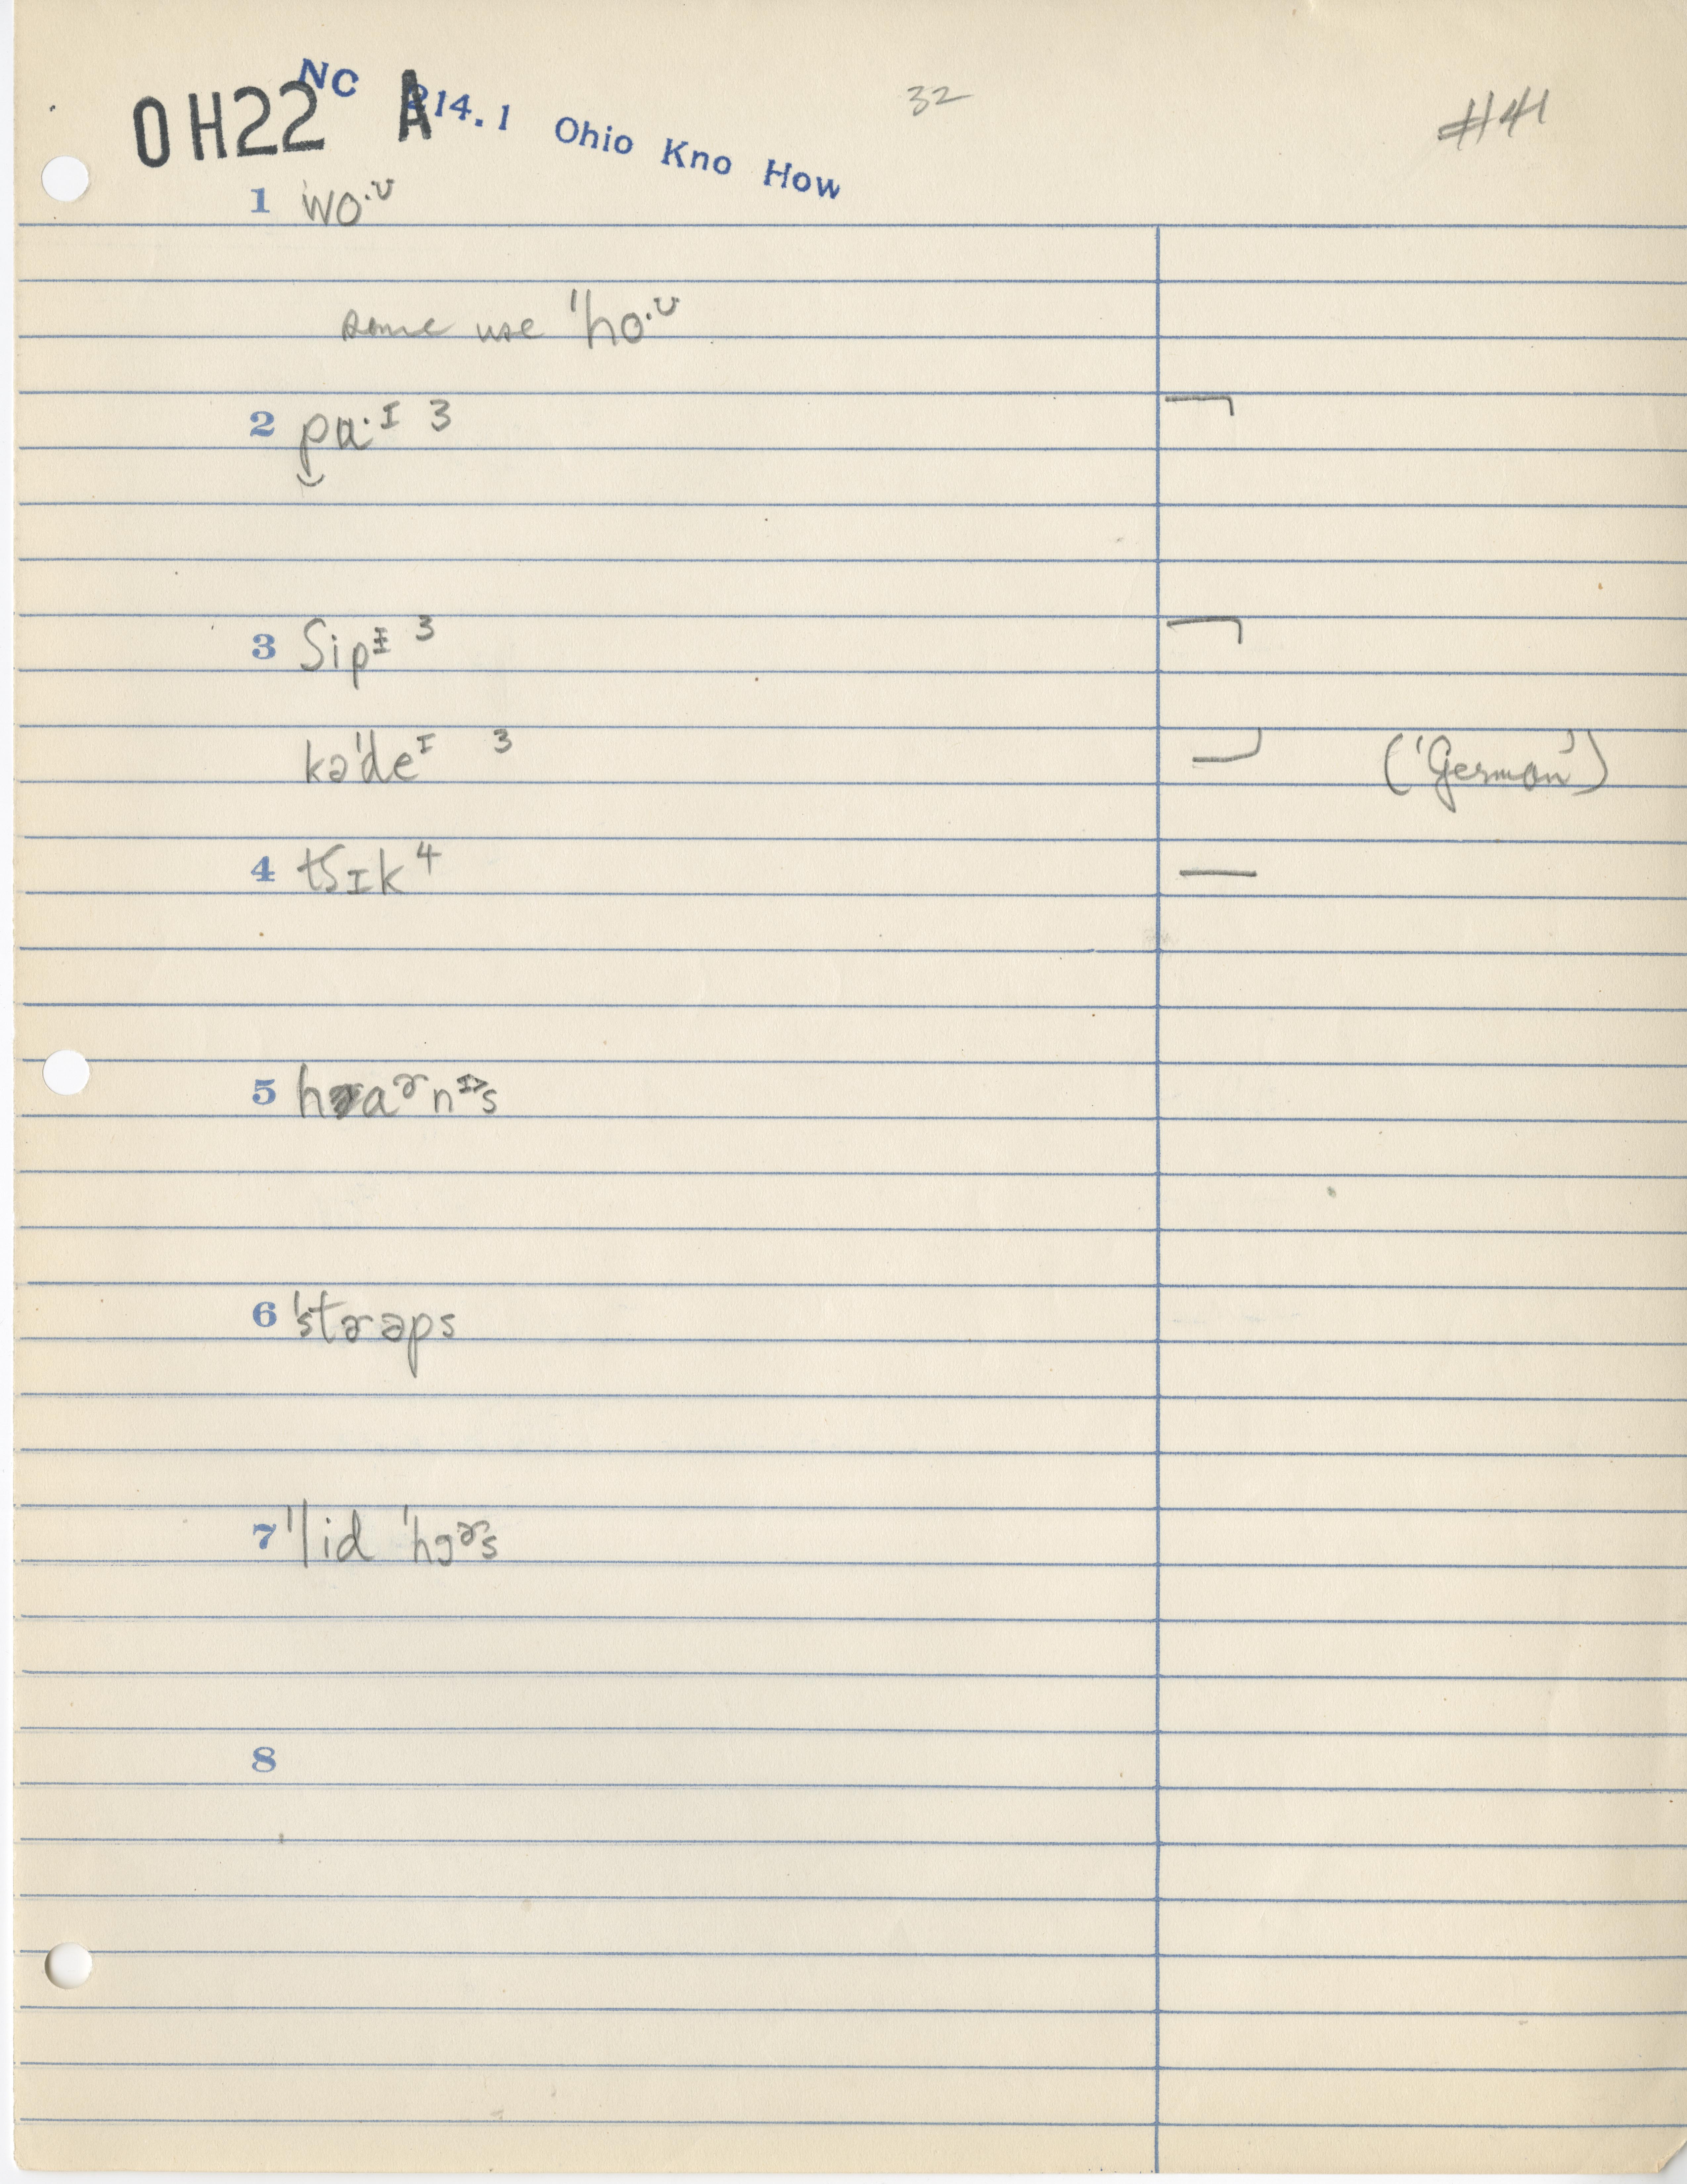 OH22 A
NC 214.1 Ohio Kno How
32
#41
1 wo·ᶷ
some use 'ho·ᶷ
2 pɑ·ᴵ 3
3 ʃipᴵ 3
kə'deᴵ 3 ('German')
4 tʃɪk⁴
5 haᵊ˞nᴵ>s
6 'stɚəps
7 'lid 'hɔᵊ˞s
8